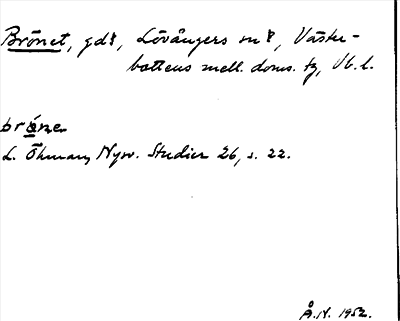 Brönet, gd, Lövångers sn, Väster-
bottens mell. doms. tg, Vb. l.
bröne
L. Öhman, Nysv. Studier 26, s. 22.
Å.N. 1952.